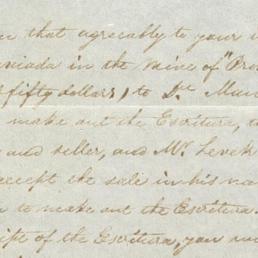 that agreeably to your
in the mine of "
fifty dollars, to D.n
make out the Escritura,
and seller, and Mr. Leveck
accept the sale in his
to make out the Escritura
of the Escritura, you